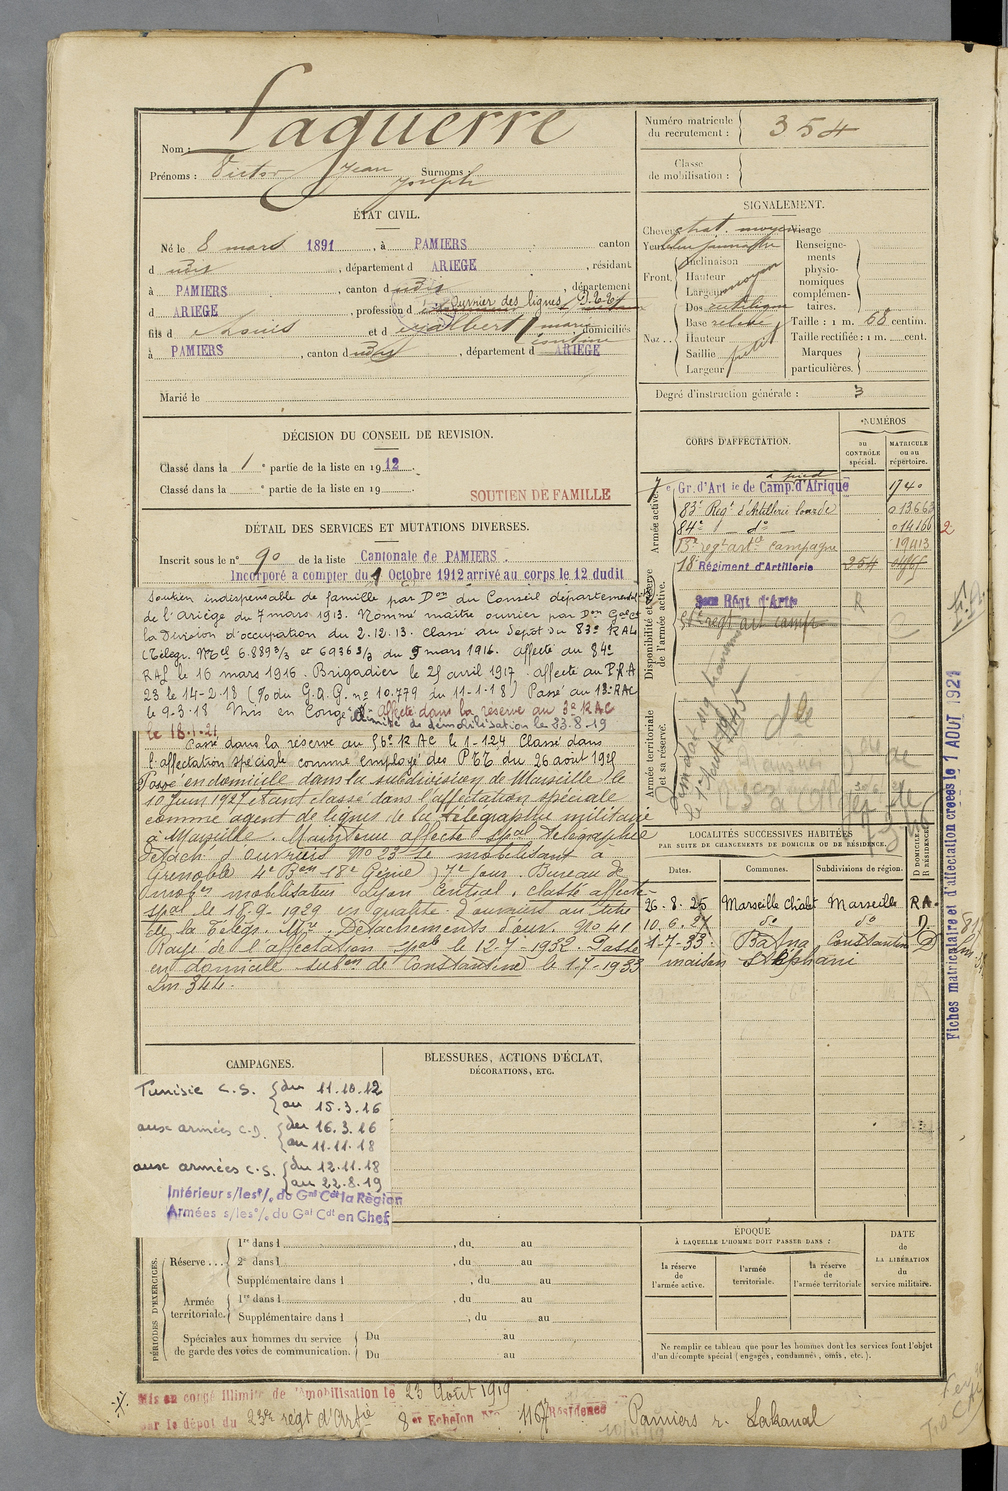 Nom : Laguerre
Prénoms : Victor Jean Joseph Surnoms
Numéro matricule du recrutement : 354
Classe de mobilisation :
ÉTAT CIVIL.
Né le 8 mars 1891, à PAMIERS canton
d udis, département d ARIEGE, résidant
à PAMIERS, canton d udis, département
d ARIEGE, profession d ouvrier des lignes P.T.T.
fils d Louis et d marie domiciliés
à PAMIERS, canton d udis, département d ARIEGE
Marié le
SIGNALEMENT.
Cheveux chat. moyen Visage
Yeux
Front. Inclinaison
Hauteur
Largeur moyen
Nez Dos rectiligne
Base relevé
Hauteur
Saillie petit
Largeur
Renseignements physionomiques complémentaires.
Taille : 1 m. 68 centim.
Taille rectifiée : 1 m. cent.
Marques particulières.
Degré d'instruction générale : 3
DÉCISION DU CONSEIL DE REVISION.
Classé dans la 1e partie de la liste en 1912.
Classé dans la e partie de la liste en 19
SOUTIEN DE FAMILLE
DÉTAIL DES SERVICES ET MUTATIONS DIVERSES.
Inscrit sous le n° 90 de la liste Cantonale de PAMIERS.
Incorporé à compter du 1 Octobre 1912 arrivé au corps le 12 dudit
Soutien indispensable de famille par Don du Conseil départemental
de l'ariège du 7 mars 1913. Nommé maître ouvrier par Don Gal Ct
la Division d'occupation du 2.12.13. Classé au Dépôt du 83e RAL
(Télégr. Mel 6.889 3/3 et 6936 3/3 du 9 mars 1916. affecté au 84e
RAL le 16 mars 1916. Brigadier le 25 avril 1917. affecté au P.R.A
23 le 14-2-18 (% du G.Q.G. n° 10.779 du 11-1-18) Passé au 18e RAC
le 9-3-18 Mis en Congé illimité de démobilisation le 23.8.19
Affecté dans la réserve au 3e RAC
le 18.1.21
Passé dans la réserve au 56e RAC le 1-1-24 Classé dans
l'affectation spéciale comme employé des PTT du 26 aout 1925
Passé en domicile dans la subdivision de Marseille le
10 Juin 1927 étant classé dans l'affectation spéciale
comme agent de lignes de la télégraphie militaire
à Marseille. Maintenu affecté spal télégraphie
Détach. d'ouvriers N° 23 se mobilisant à
Grenoble 4e Bon 18e Génie) 7e Jour. Bureau de
mobilisateur Lyon Central. classé affecté
spal le 15-9-1929 en qualité d'ouvrier au titre
de la Télégr. Mre. Détachements d'ouv. N° 41
Rayé de l'affectation spale le 12-7-1932. Passé
en domicile subon de Constantine le 1-7-1933
Lm 344.
CORPS D'AFFECTATION.
NUMÉROS
au CONTRÔLE spécial.
MATRICULE ou au répertoire.
Armée active.
Disponibilité et réserve de l'armée active.
Armée territoriale et sa réserve.
7e Gr. d'Art ie de Camp. d'Afrique à pied 1740
83e Regt d'Artillerie lourde 013663
84e d° 014166 2
15e regt artie campagne 19413
18e Régiment d'Artillerie 254
3eme Régt d'Artie R
56e regt art camp C
LOCALITÉS SUCCESSIVES HABITÉES
PAR SUITE DE CHANGEMENTS DE DOMICILE OU DE RÉSIDENCE.
Dates. Communes. Subdivisions de région. D DOMICILE R RÉSIDENCE
26.8.25 Marseille Marseille R.A.
10.6.27 d° d° D.
1-7-33. Batna Constantine D
maison Stéphani
Fiches matriculaire et d'affectation créées le 1 AOUT 1921
CAMPAGNES.
Tunisie C.S. du 11.10.12
au 15.3.16
aux armées C.D. du 16.3.16
au 11.11.18
aux armées C.S. du 12.11.18
au 22.8.19
Intérieur s/les % du Gal Cdt la Région
Armées s/les % du Gal Cdt en Chef
BLESSURES, ACTIONS D'ÉCLAT,
DÉCORATIONS, ETC.
PÉRIODES D'EXERCICES.
Réserve 1re dans l , du au
2e dans l , du au
Supplémentaire dans l , du au
Armée territoriale. 1re dans l , du au
Supplémentaire dans l , du au
Spéciales aux hommes du service de garde des voies de communication. Du au
Du au
ÉPOQUE
À LAQUELLE L'HOMME DOIT PASSER DANS :
la réserve de l'armée active.
l'armée territoriale.
la réserve de l'armée territoriale
DATE de LA LIBÉRATION du service militaire.
Ne remplir ce tableau que pour les hommes dont les services font l'objet
d'un décompte spécial (engagés, condamnés, omis, etc.).
Mis en congé illimité de démobilisation le 23 Août 1919
par le dépôt du 23e régt d'Artie 8e Echelon No 1197 Résidence Pamiers r. Lakanal